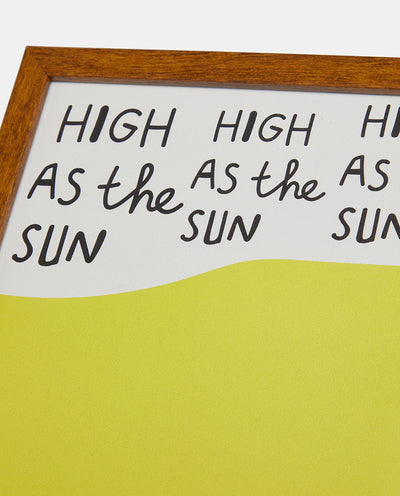 HIGH HIGH HI
AS the AS the AS
SUN SUN SUN